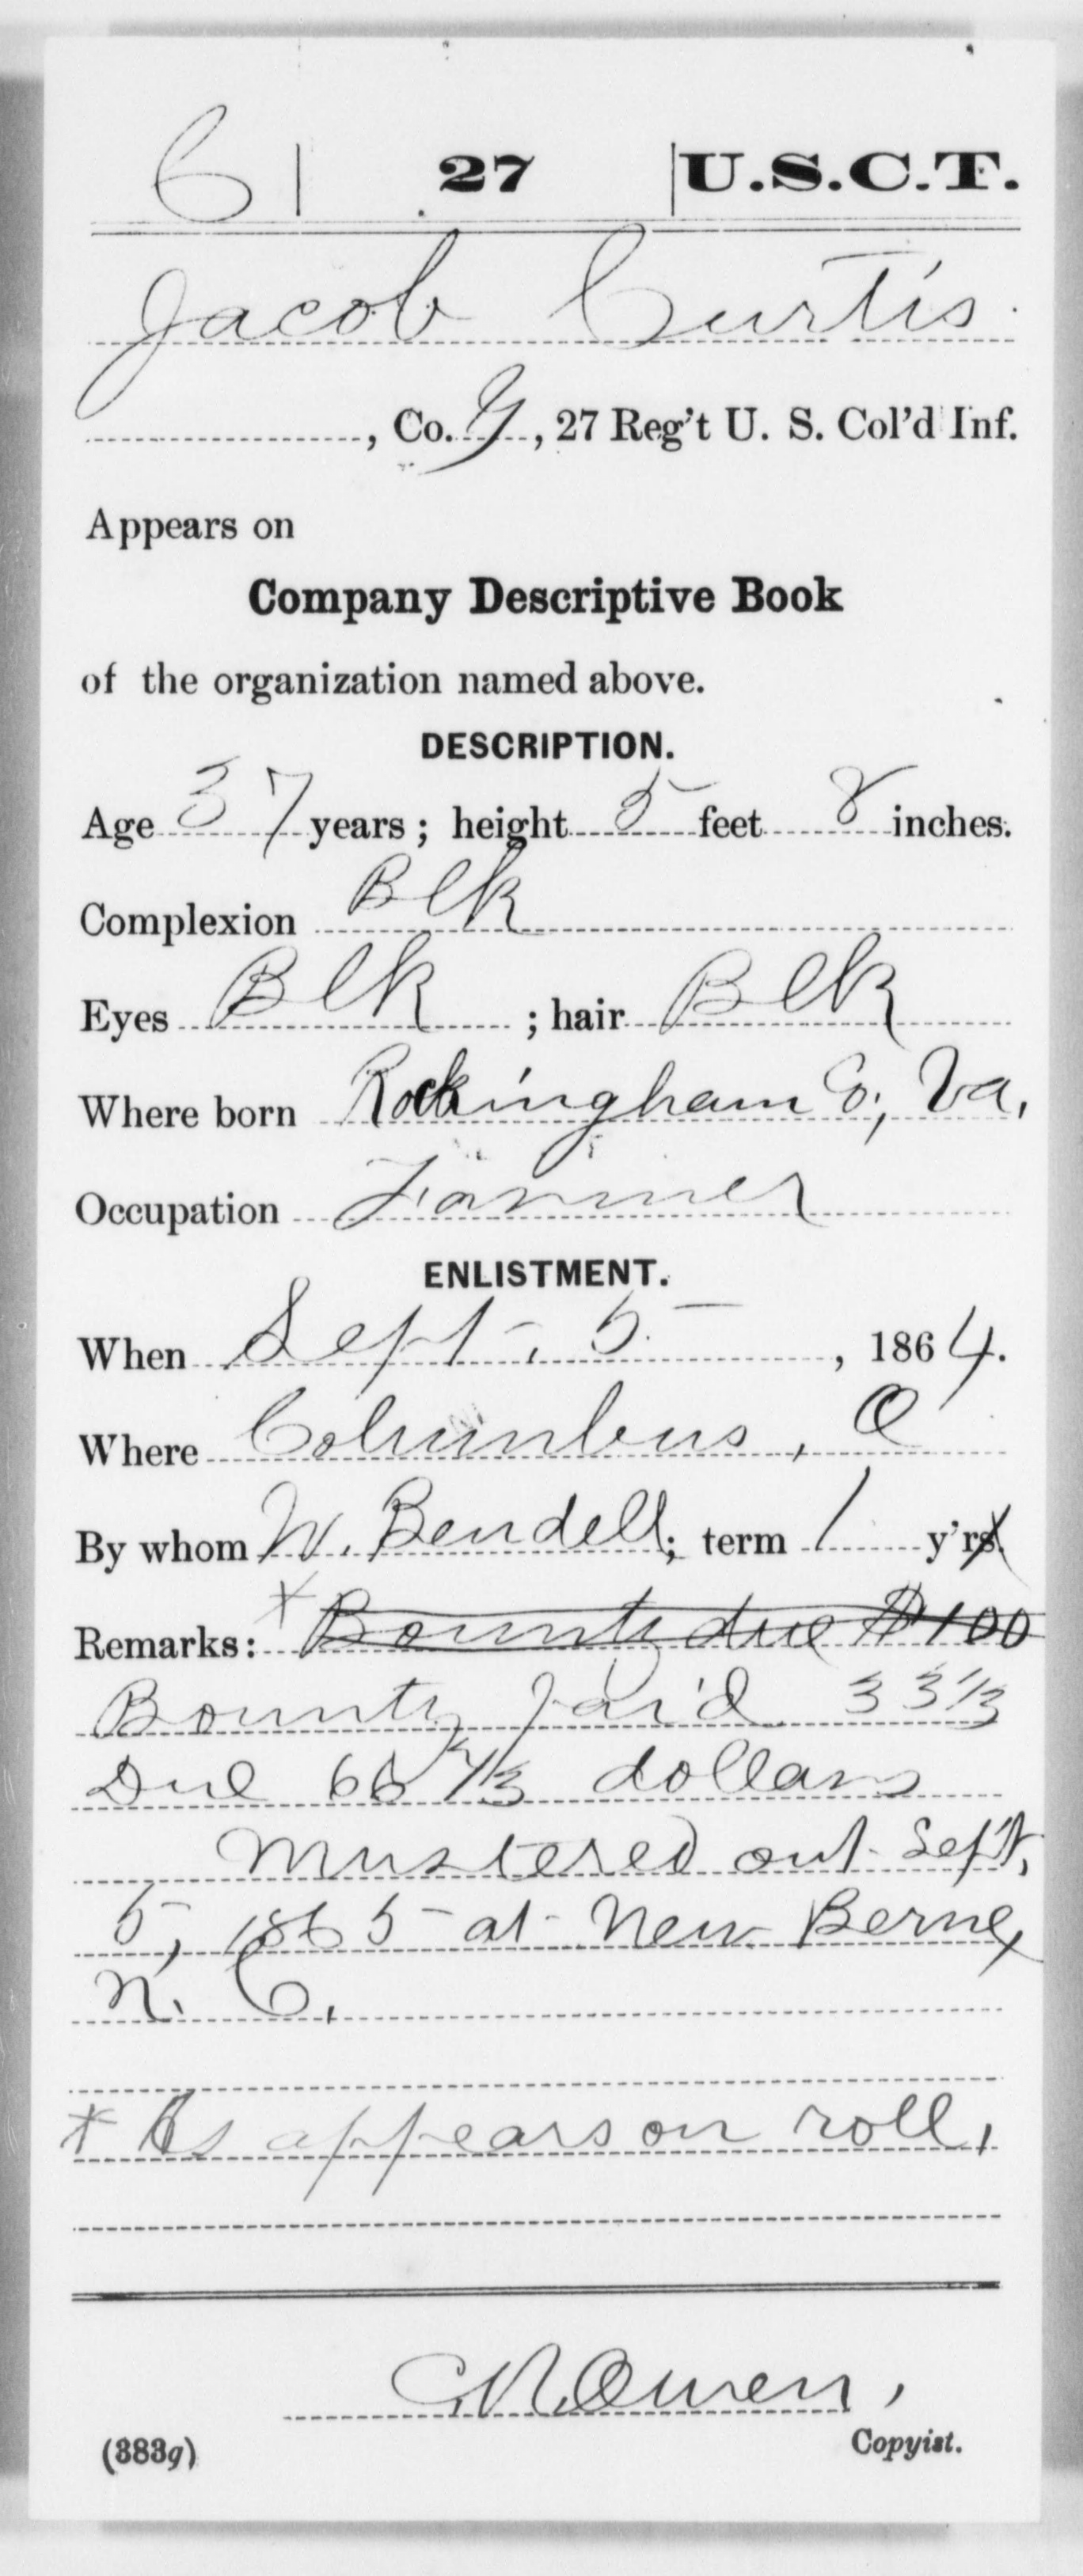 C | 27 | U.S.C.T.
Jacob Curtis.
, Co. G, 27 Reg't U. S. Col'd Inf.
Appears on
Company Descriptive Book
of the organization named above.
DESCRIPTION.
Age 37 years; height 5 feet 8 inches.
Complexion Blk
Eyes Blk ; hair Blk
Where born Rockingham Co., Va.
Occupation Farmer
ENLISTMENT.
When Sept. 5, 1864.
Where Columbus, O
By whom W. Bendell; term 1 y'rs.
Remarks: * Bounty due $100
Bounty paid 33 1/3
Due 66 2/3 dollars
Mustered out Sept.
5, 1865 at New Berne,
N. C.
* As appears on roll.
Owen,
(383g) Copyist.